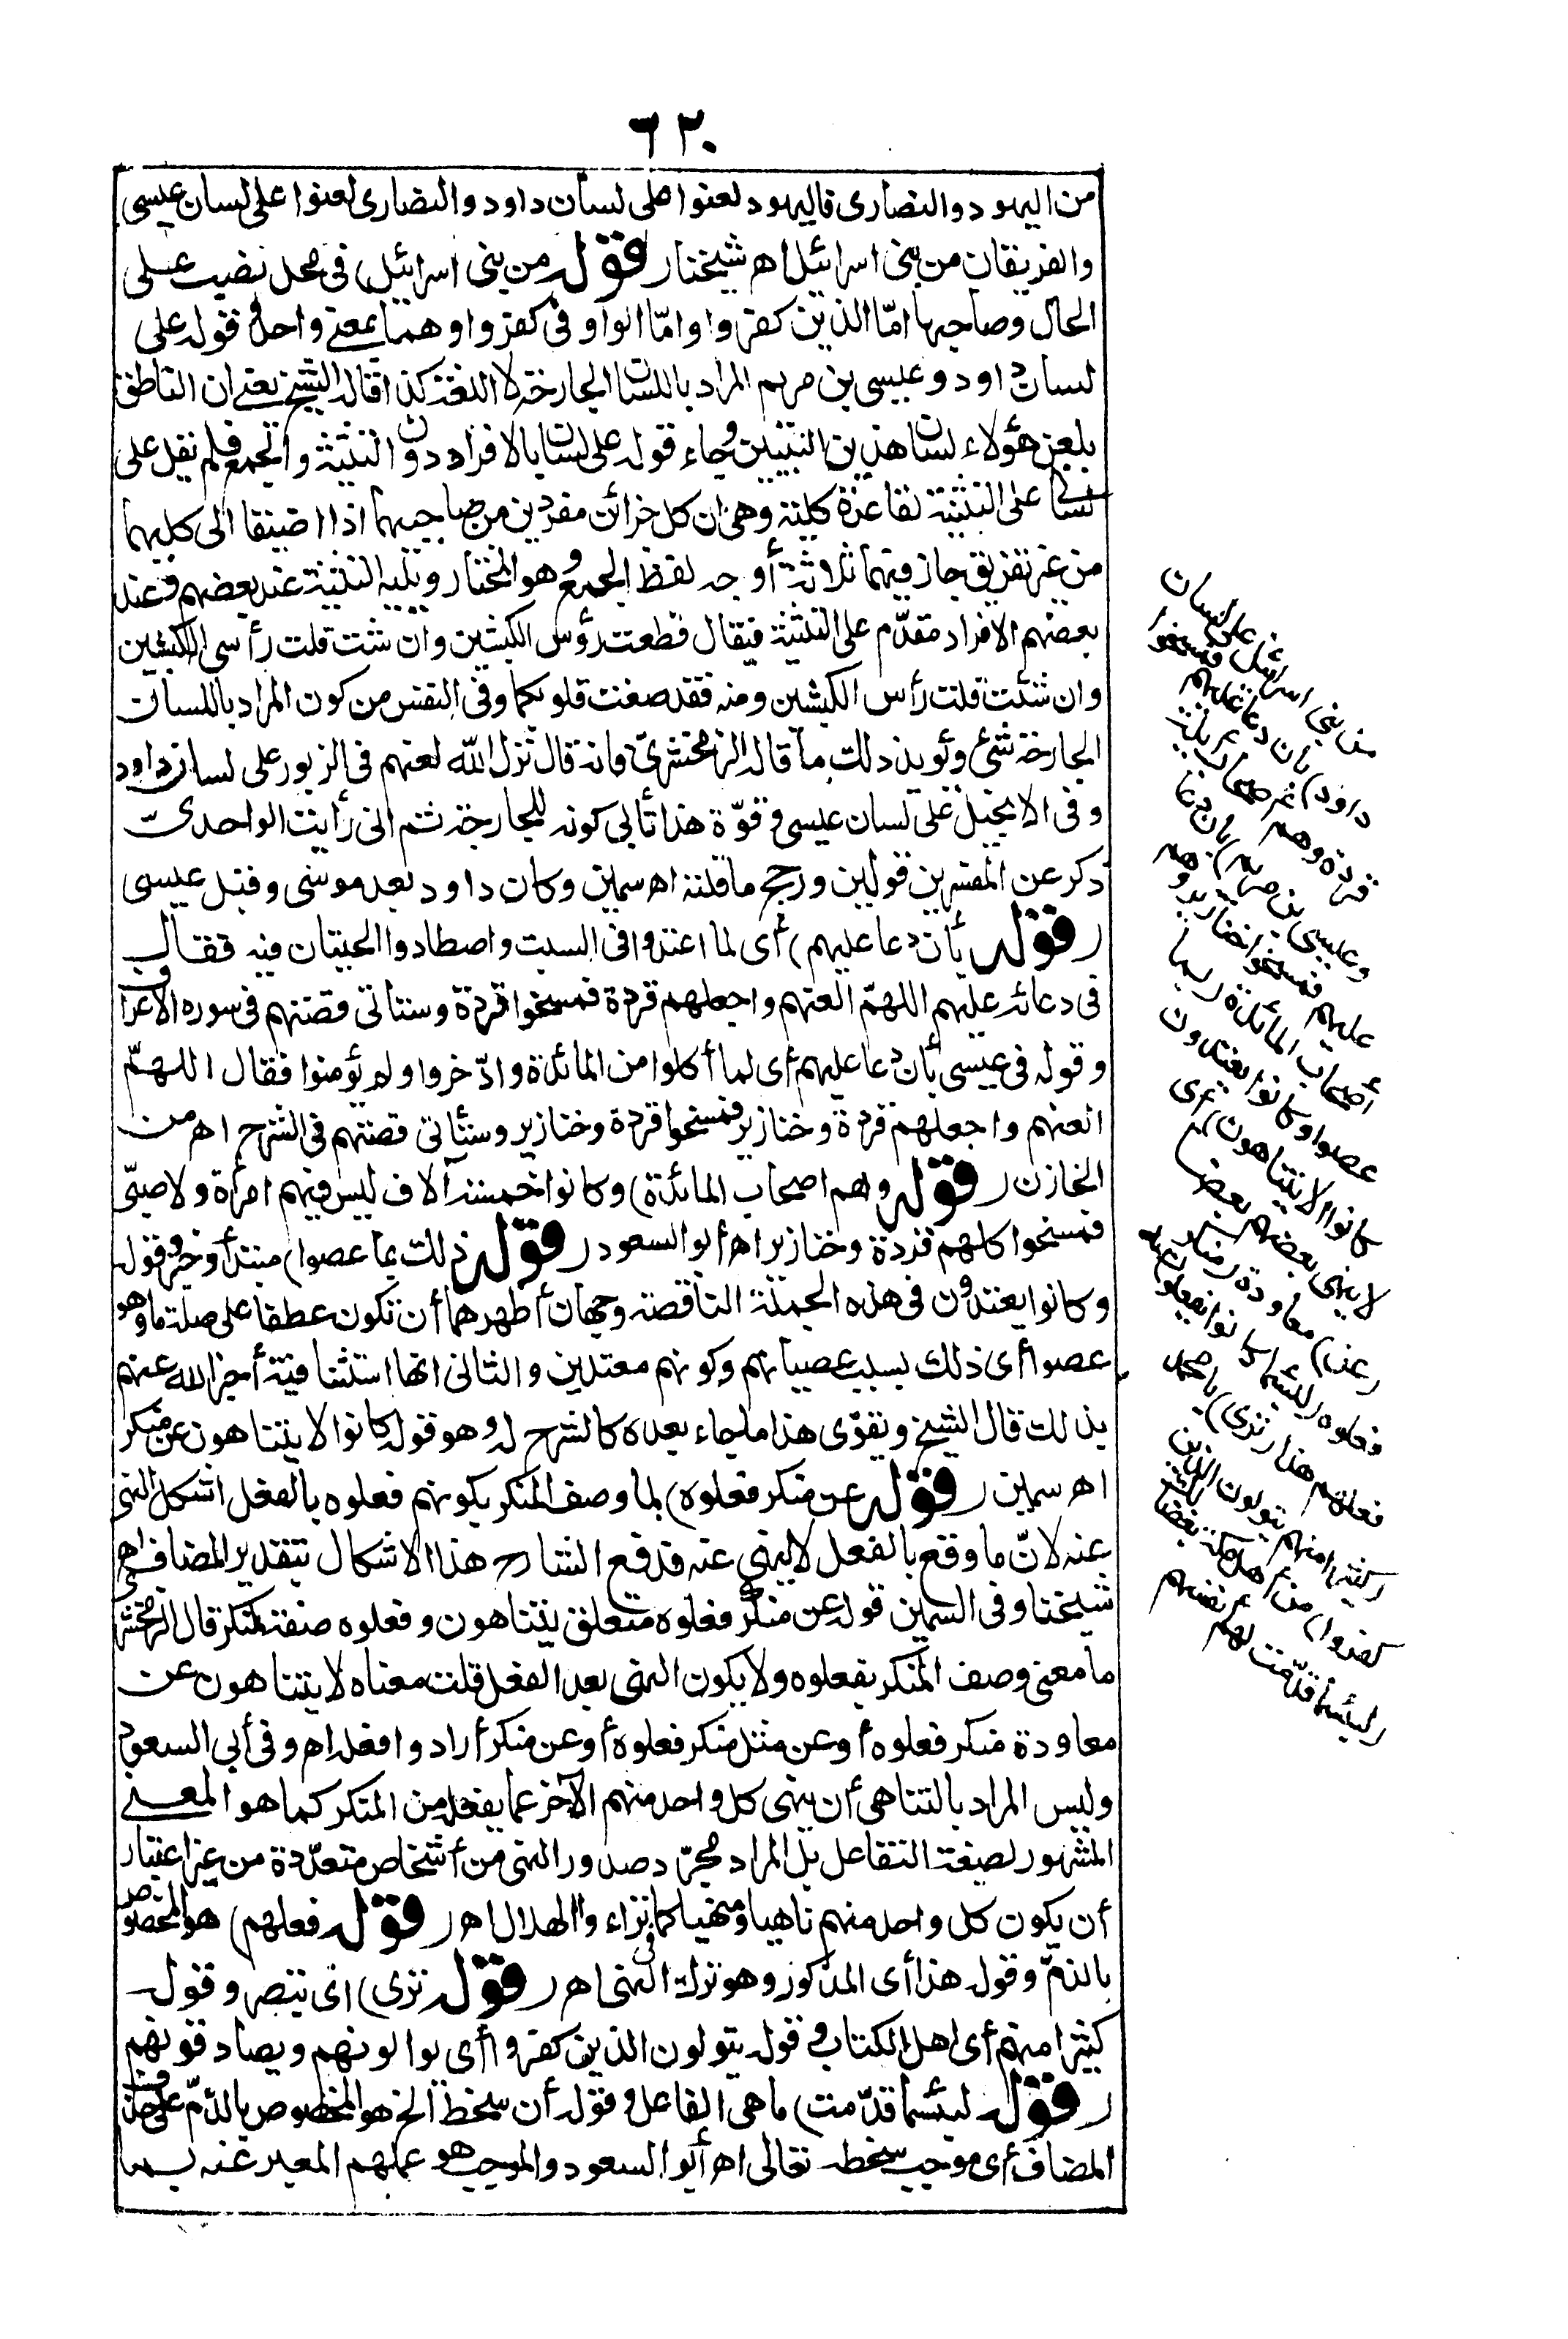 ٦٢٠
من اليهود والنصارى فاليهود لعنوا على لسان داود والنصارى لعنوا على لسان عيسى
والفريقان من بنى اسرائيل اه شيخنا (قوله من بنى اسرائيل) فى محل نصب على
الحال وصاحبها امّا الذين كفروا وامّا الواو فى كفروا وهما بمعنى واحد وقوله على
لسان داود وعيسى بن مريم المراد باللسان الجارحة لا اللغة كذا قاله الشيخ يعنى ان الناطق
بلعن هؤلاء لسان هذين النبيين وجاء قوله على لسان بالافراد دون التثنية والجمع فلم يقل على
لسانى على التثنية لقاعدة كلية وهى ان كل جزأين مفردين من صاحبيهما اذا اضيفا الى كليهما
من غير تفريق جاز فيهما ثلاثة أوجه لفظ الجمع وهو المختار ويليه التثنية عند بعضهم وعند
بعضهم الافراد مقدّم على التثنية فيقال قطعت رؤس الكبشين وان شئت قلت رأسى الكبشين
وان شئت قلت رأس الكبشين ومنه فقد صغت قلوبكما وفى النفس من كون المراد باللسان
الجارحة شئ ويؤيد ذلك ما قاله الزمخشرىّ فانه قال نزل الله لعنهم فى الزبور على لسان داود
وفى الانجيل على لسان عيسى وقوّة هذا تأبى كونه للجارحة ثم انى رأيت الواحدىّ
ذكر عن المفسرين قولين ورجح ما قلته اه سمين وكان داود بعد موسى وقبل عيسى
(قوله بأن دعا عليهم) أى لما اعتدوا فى السبت واصطادوا الحيتان فيه فقال
فى دعائه عليهم اللهمّ العنهم واجعلهم قردة فمسخوا قردة وستاتى قصتهم فى سورة الاعراف
وقوله فى عيسى بأن دعا عليهم أى لما أكلوا من المائدة وادّخروا ولم يؤمنوا فقال اللهمّ
العنهم واجعلهم قردة وخنازير فمسخوا قردة وخنازير وستأتى قصتهم فى الشرح اه من
الخازن (قوله وهم اصحاب المائدة) وكانوا خمسة آلاف ليس فيهم امرأة ولا صبىّ
فمسخوا كلهم قردة وخنازير اه أبو السعود (قوله ذلك بما عصوا) مبتدأ وخبر وقوله
وكانوا يعتدون فى هذه الجملة الناقصة وجهان أظهرهما أن تكون عطفا على صلة ما وهو
عصوا أى ذلك بسبب عصيانهم وكونهم معتدين والثانى انها استئنافية أخبر الله عنهم
بذلك قال الشيخ ويقوّى هذا ما جاء بعده كالشرح له وهو قوله كانوا لا يتناهون عن منكر
اه سمين (قوله عن منكر فعلوه) لما وصف المنكر بكونهم فعلوه بالفعل اشكل النهى
عنه لانّ ما وقع بالفعل لا ينهى عنه فدفع الشارح هذا الاشكال بتقدير المضاف اه
شيخنا وفى السمين قوله عن منكر فعلوه متعلق بيتناهون وفعلوه صفة لمنكر قال الزمخشرى
ما معنى وصف المنكر بفعلوه ولا يكون النهى بعد الفعل قلت معناه لا يتناهون عن
معاودة منكر فعلوه أو عن مثل منكر فعلوه أو عن منكر أرادوا فعله اه وفى أبى السعود
وليس المراد بالتناهى أن ينهى كل واحد منهم الآخر عما يفعله من المنكر كما هو المعنى
المشهور لصيغة التفاعل بل المراد مجرّد صدور النهى من أشخاص متعدّدة من غير اعتبار
أن يكون كل واحد منهم ناهيا ومنهيا كما فى تراءوا الهلال اه (قوله فعلهم) هو المخصوص
بالذمّ وقوله هذا أى المذكور وهو ترك النهى اه (قوله ترى) أى تبصر وقوله
كثيرا منهم أى اهل الكتاب وقوله يتولون الذين كفروا أى يوالونهم ويصادقونهم
(قوله لبئسما قدّمت) ما هى الفاعل وقوله أن سخط الخ هو المخصوص بالذمّ على حذف
المضاف أى موجب سخطه تعالى اه أبو السعود والموجب هو عملهم المعبر عنه بما
من بنى اسرائيل على لسان
داود) بأن دعا عليهم فمسخوا
قردة وهم أصحاب أيلة
وعيسى بن مريم) بأن دعا
عليهم فمسخوا خنازير وهم
أصحاب المائدة (ذلك بما
عصوا وكانوا يعتدون
كانوا لا يتناهون) أى
لا ينهى بعضهم بعضا
(عن) معاودة (منكر
فعلوه لبئسما كانوا يفعلون)ه
فعلهم هذا (ترى) يا محمد
(كثيرا منهم يتولون الذين
كفروا) من أهل مكة بغضا لك
(لبئسما قدّمت لهم أنفسهم